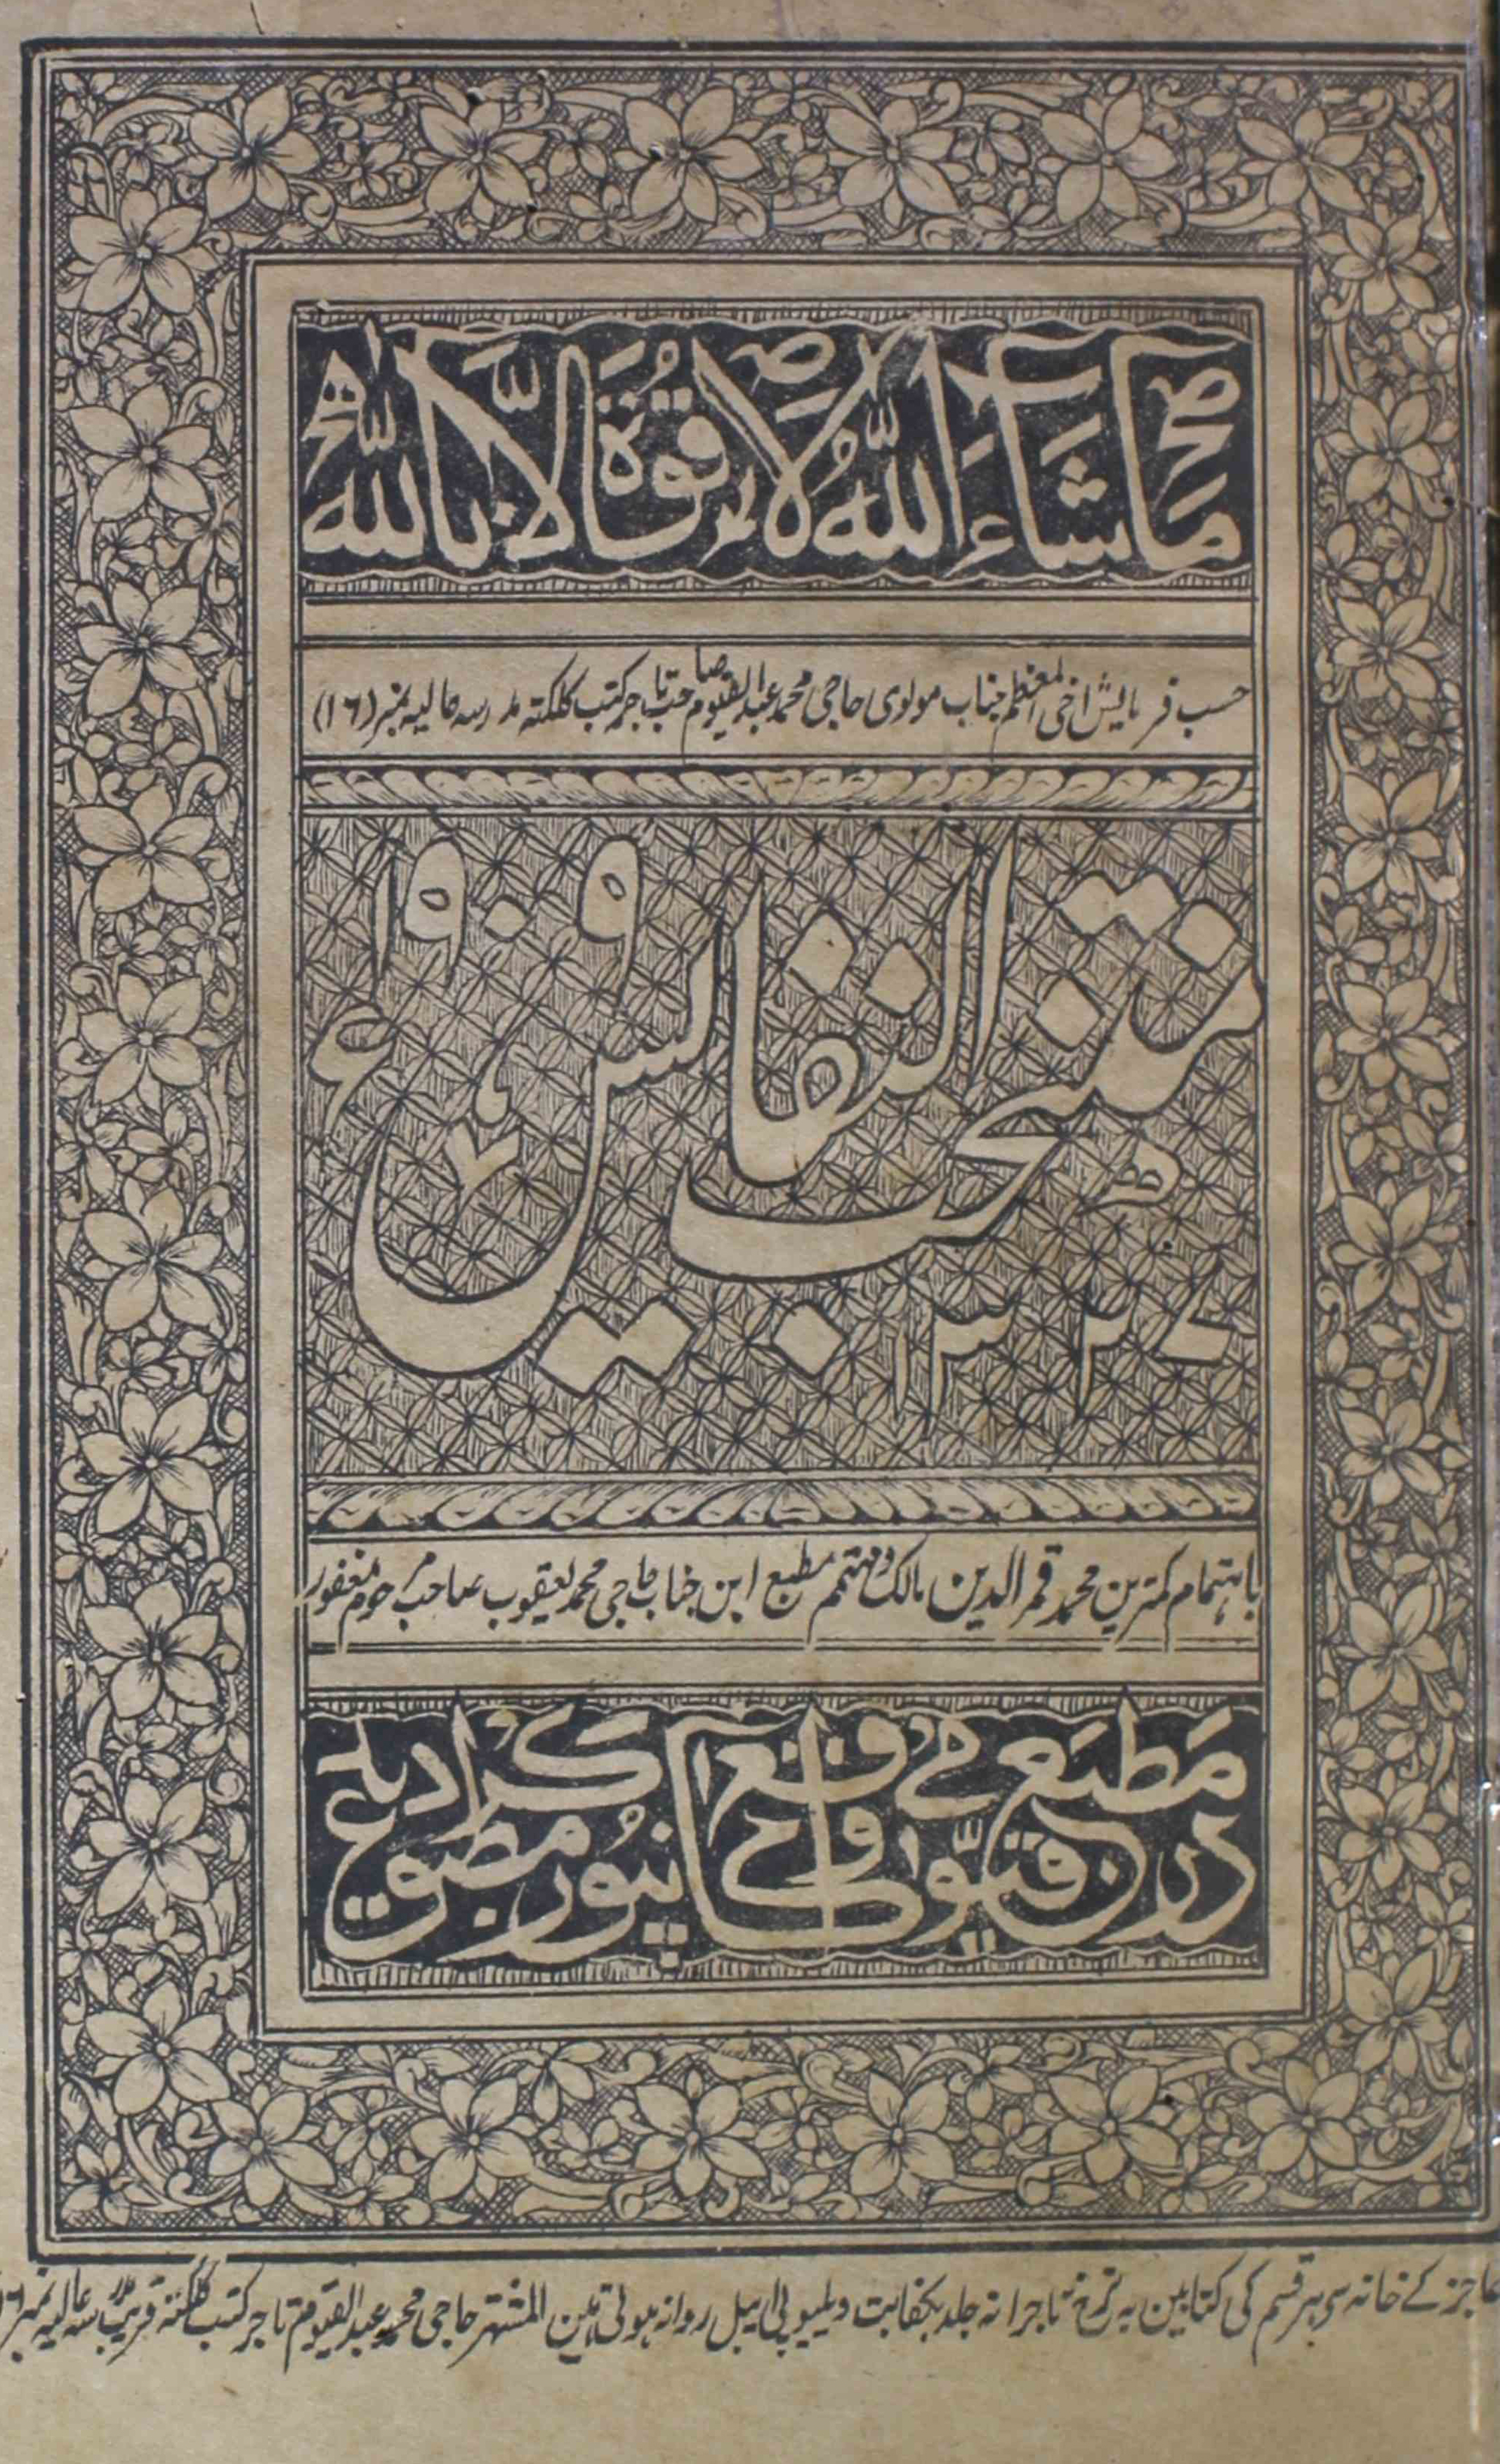 مَا شَاءَ اللّٰهُ لَا قُوَّةَ اِلَّا بِاللّٰهِ
حسب فرمایش اخی المعظم جناب مولوی حاجی محمد عبدالقیوم صاحب تاجر کتب کلکته مدرسه عالیه نمبر (۱۶)
۱۹۰۹ء
منتخب النفایس
۱۳۲۷ھ
باہتمام کمترین محمد قمر الدین مالک و مہتمم مطبع ابن جناب حاجی محمد یعقوب صاحب مرحوم مغفور
مطبع
در کانپور مطبوع
عاجز کے خانہ سی ہر قسم کی کتابین بہ نرخ تاجرانہ جلد بکفایت ویلیو پی ایبل روانہ ہوتی ہین المشتہر حاجی محمد عبدالقیوم تاجر کتب کلکتہ قریب مدرسہ عالیہ نمبر